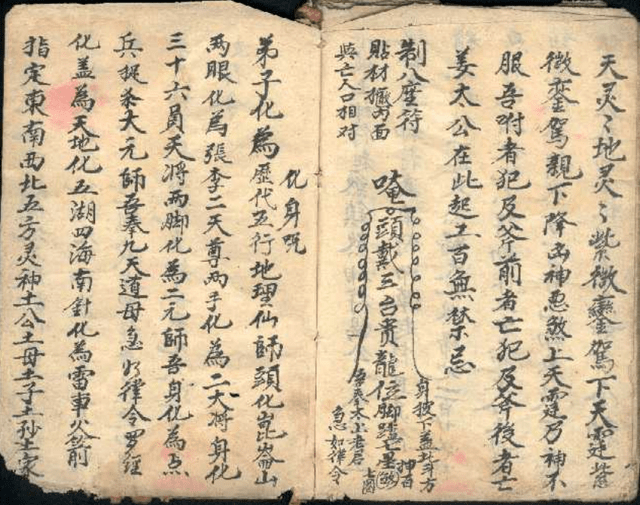 天灵〻地灵〻紫微鑾駕下天霆紫
微鑾駕親下降凶神恶煞上天霆乃神不
服吾咐者犯及斧前者亡犯及斧後者亡
姜太公在此起工百無禁忌
制八座符
貼材攔方面
與亡人口相对
唵
頭戴三台贵龍位脚踏七星
身披下盖北斗方
押百
急如律令
化身咒
弟子化為歷代五行地理仙師頭化崑崙山
两眼化為張李二天尊两手化為二大将身化
三十六員天将两脚化為二元师吾身化為
兵捉杀大元师吾奉九天道母急如律令罗經
化盖為天地化五湖四海南針化為雷車火
指定東南西北五方灵神土公土母土子土孙土家